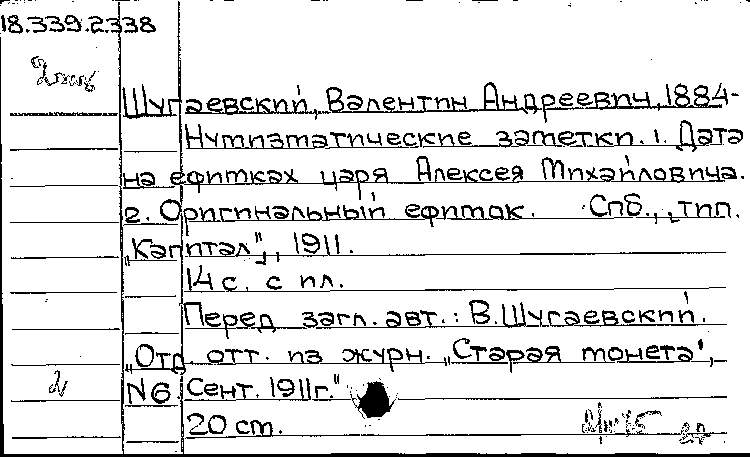 18.339.2.338
2 экз
Шугаевский, Валентин Андреевич, 1884-
Нумизматические заметки. 1. Дата
на ефимках царя Алексея Михайловича.
2. Оригинальный ефимок. Спб., „тип.
„Капитал", 1911.
14 с. с пл.
Перед загл. авт.: В. Шугаевский.
„Отд. отт. из журн. „Старая монета",
2 №6 Сент. 1911г."
20 cm.
27